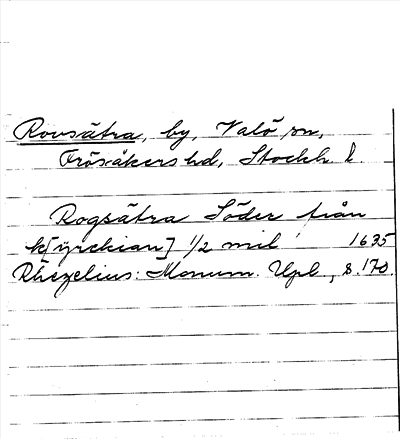 Rovsätra, by, Valö sn,
Frösåkers hd, Stockh l.
Rogsätra Söder från
k[yrckian] 1/2 mil 1635
Rhezelius: Monum. Upl., s. 170.